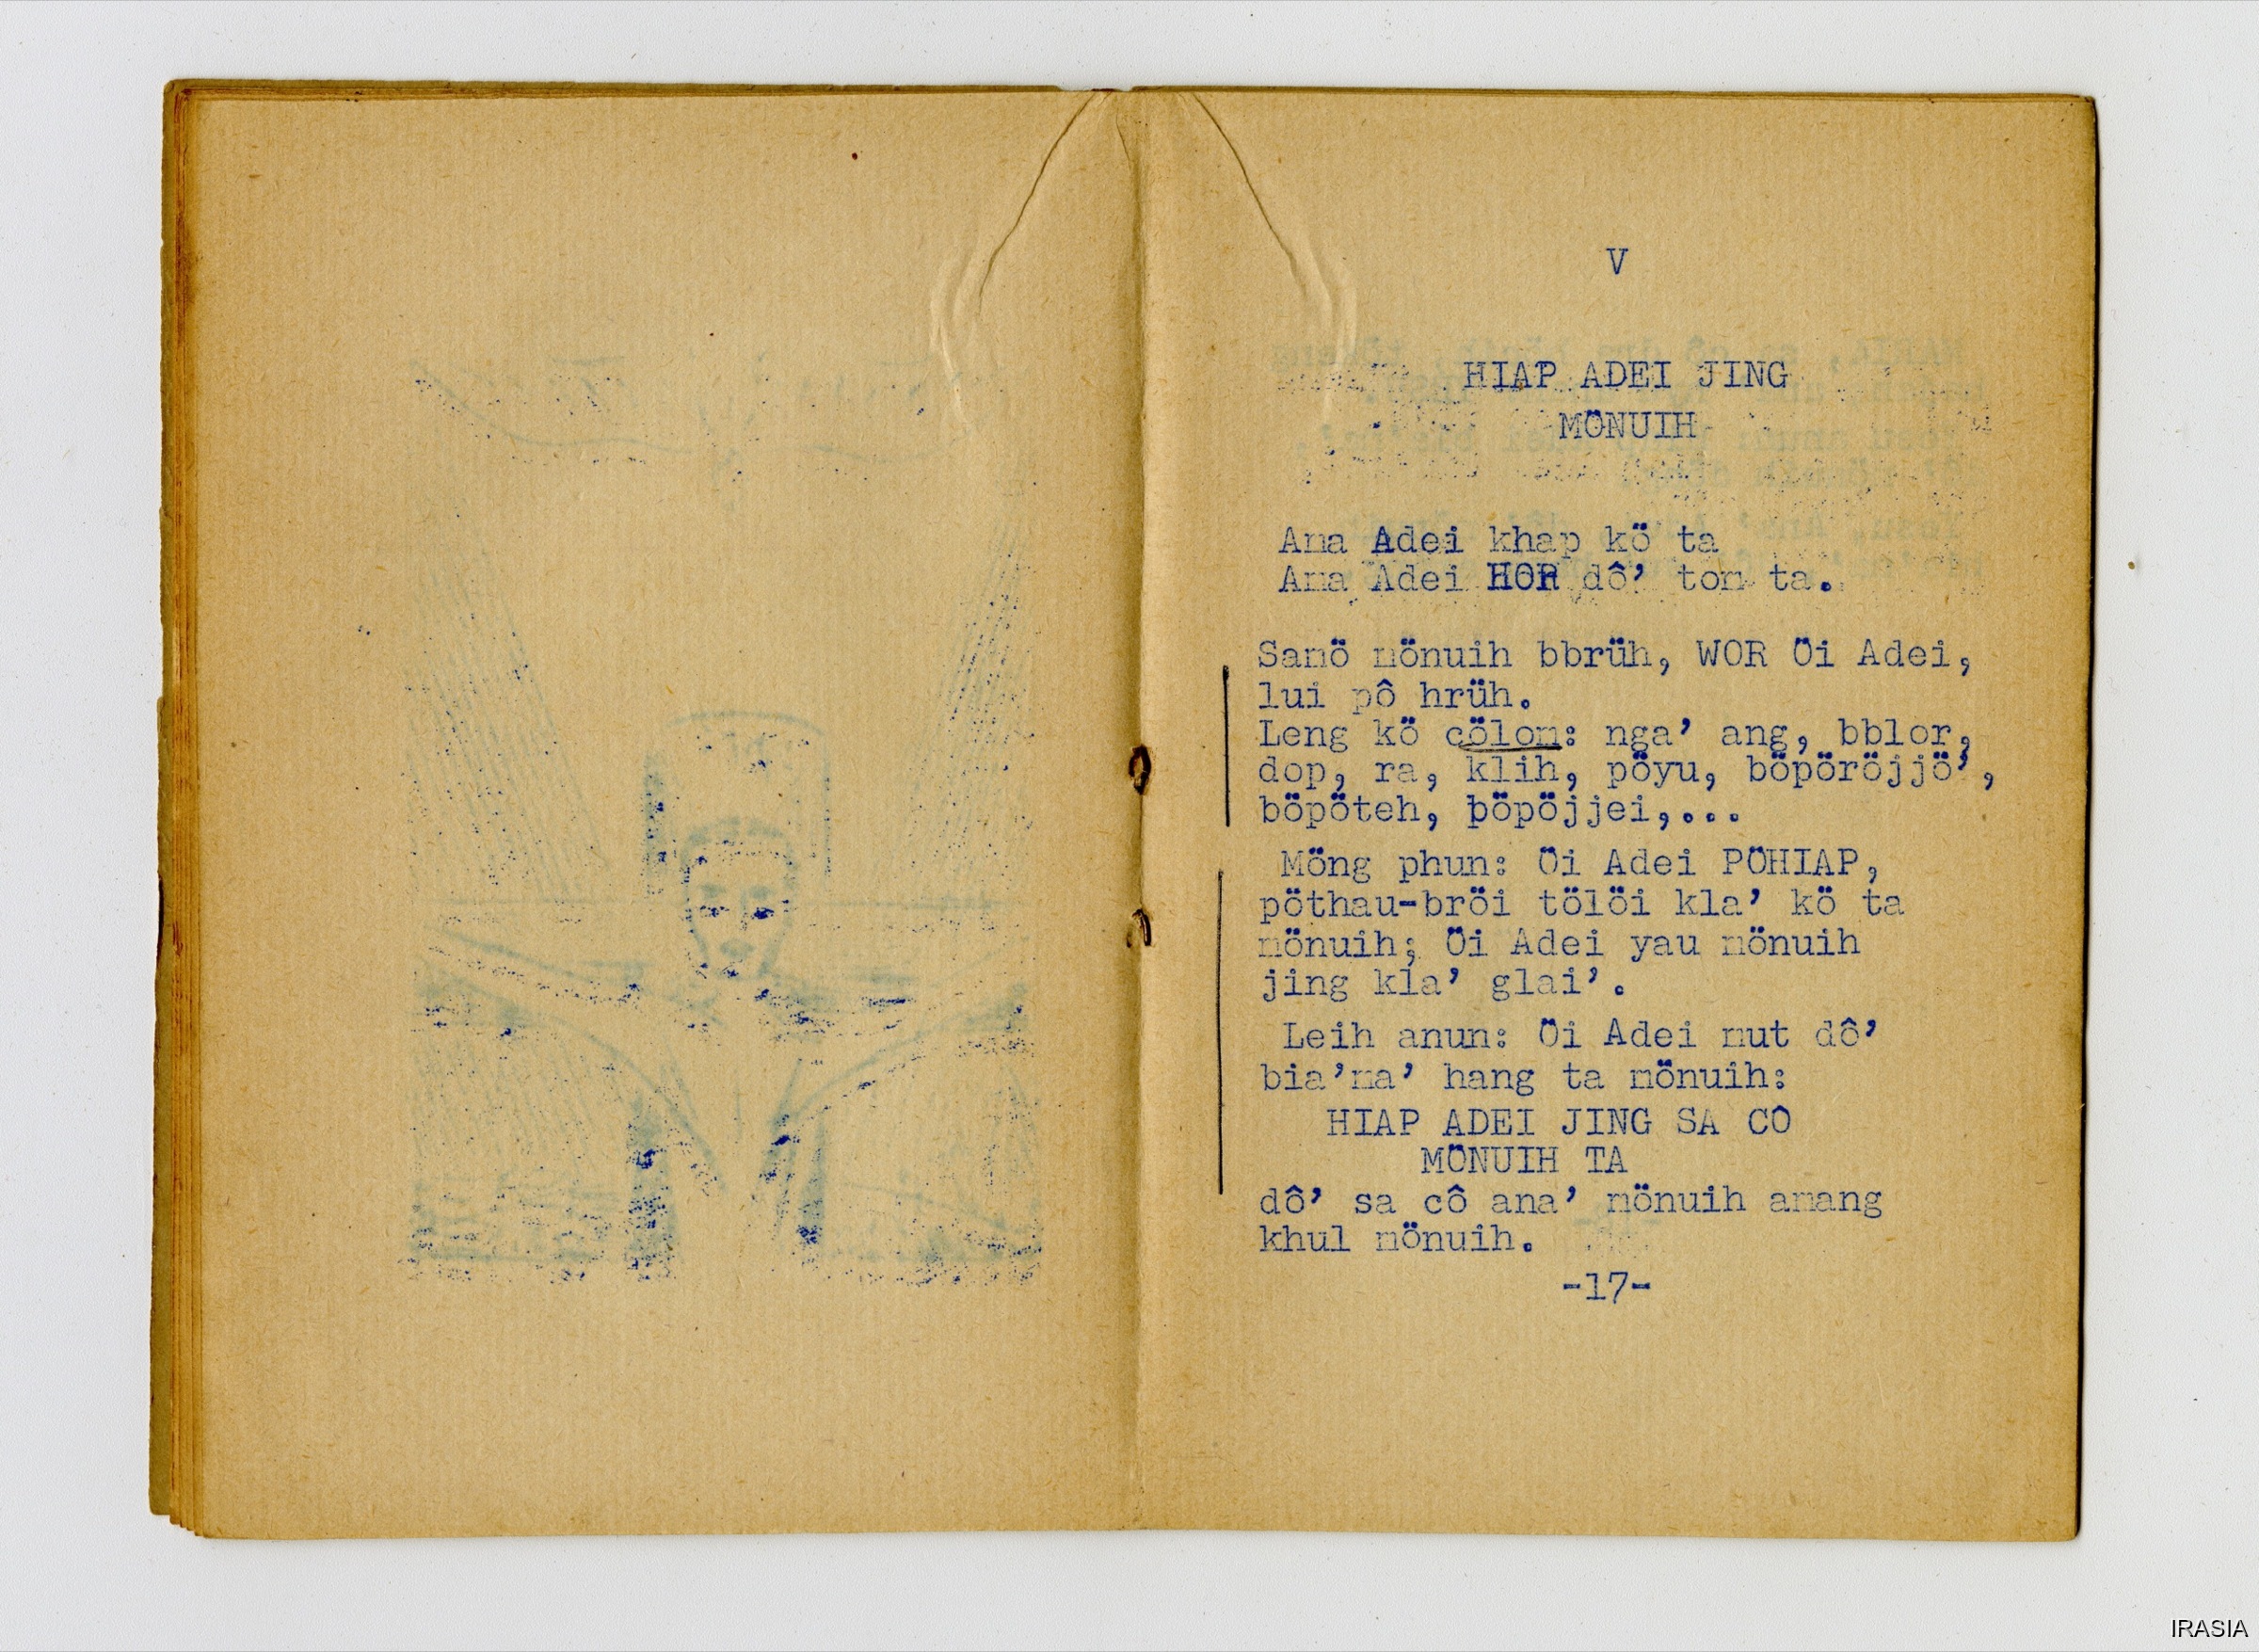 V
HIAP ADEI JING
MÖNUIH
Ama Adei khap kö ta
Ama Adei HOR dô' tom ta.
Samö mönuih bbrüh, WOR Öi Adei,
lui pô hrüh.
Leng kö cölom: nga' ang, bblor,
dop, ra, klih, pöyu, böpöröjjö',
böpöteh, böpöjjei,...
Möng phun: Öi Adei PÖHIAP,
pöthau-bröi tölöi kla' kö ta
mönuih; Öi Adei yau mönuih
jing kla' glai'.
Leih anun: Öi Adei mut dô'
bia'ma' hang ta mönuih:
HIAP ADEI JING SA CÔ
MÖNUIH TA
dô' sa cô ana' mönuih amang
khul mönuih.
-17-
IRASIA